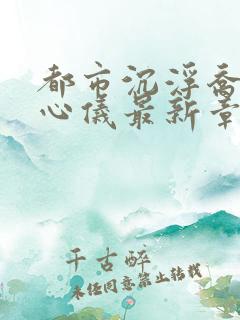 都市沉浮乔
心仪最新章
千古醉
未经同意禁止转载